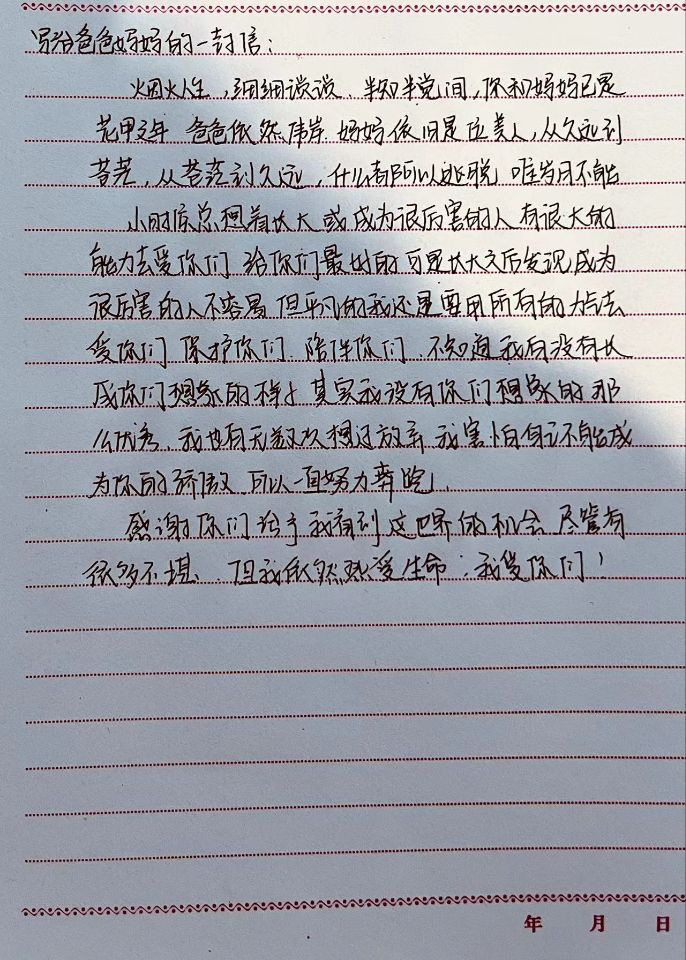 写给爸爸妈妈的一封信：
烟火人生，细细谈谈、半知半觉间，你和妈妈已是
花甲之年 爸爸依然伟岸 妈妈依旧是位美人，从久远到
苍茫，从苍茫到久远，什么都可以逃脱 唯岁月不能
小时候总想着长大 或成为很厉害的人 有很大的
能力去爱你们 给你们最好的 可是长大之后发现 成为
很厉害的人不容易 但平凡的我还是要用所有的力量去
爱你们 保护你们、陪伴你们、不知道 我有没有长
成你们想象的样子 其实我没有你们想象的那
么优秀、我也有无数次想过放弃 我害怕自己不能成
为你的骄傲 可以一直努力奔跑，
感谢你们给予我看到这世界的机会 尽管有
很多不堪、但我依然热爱生命：我爱你们！
年 月 日